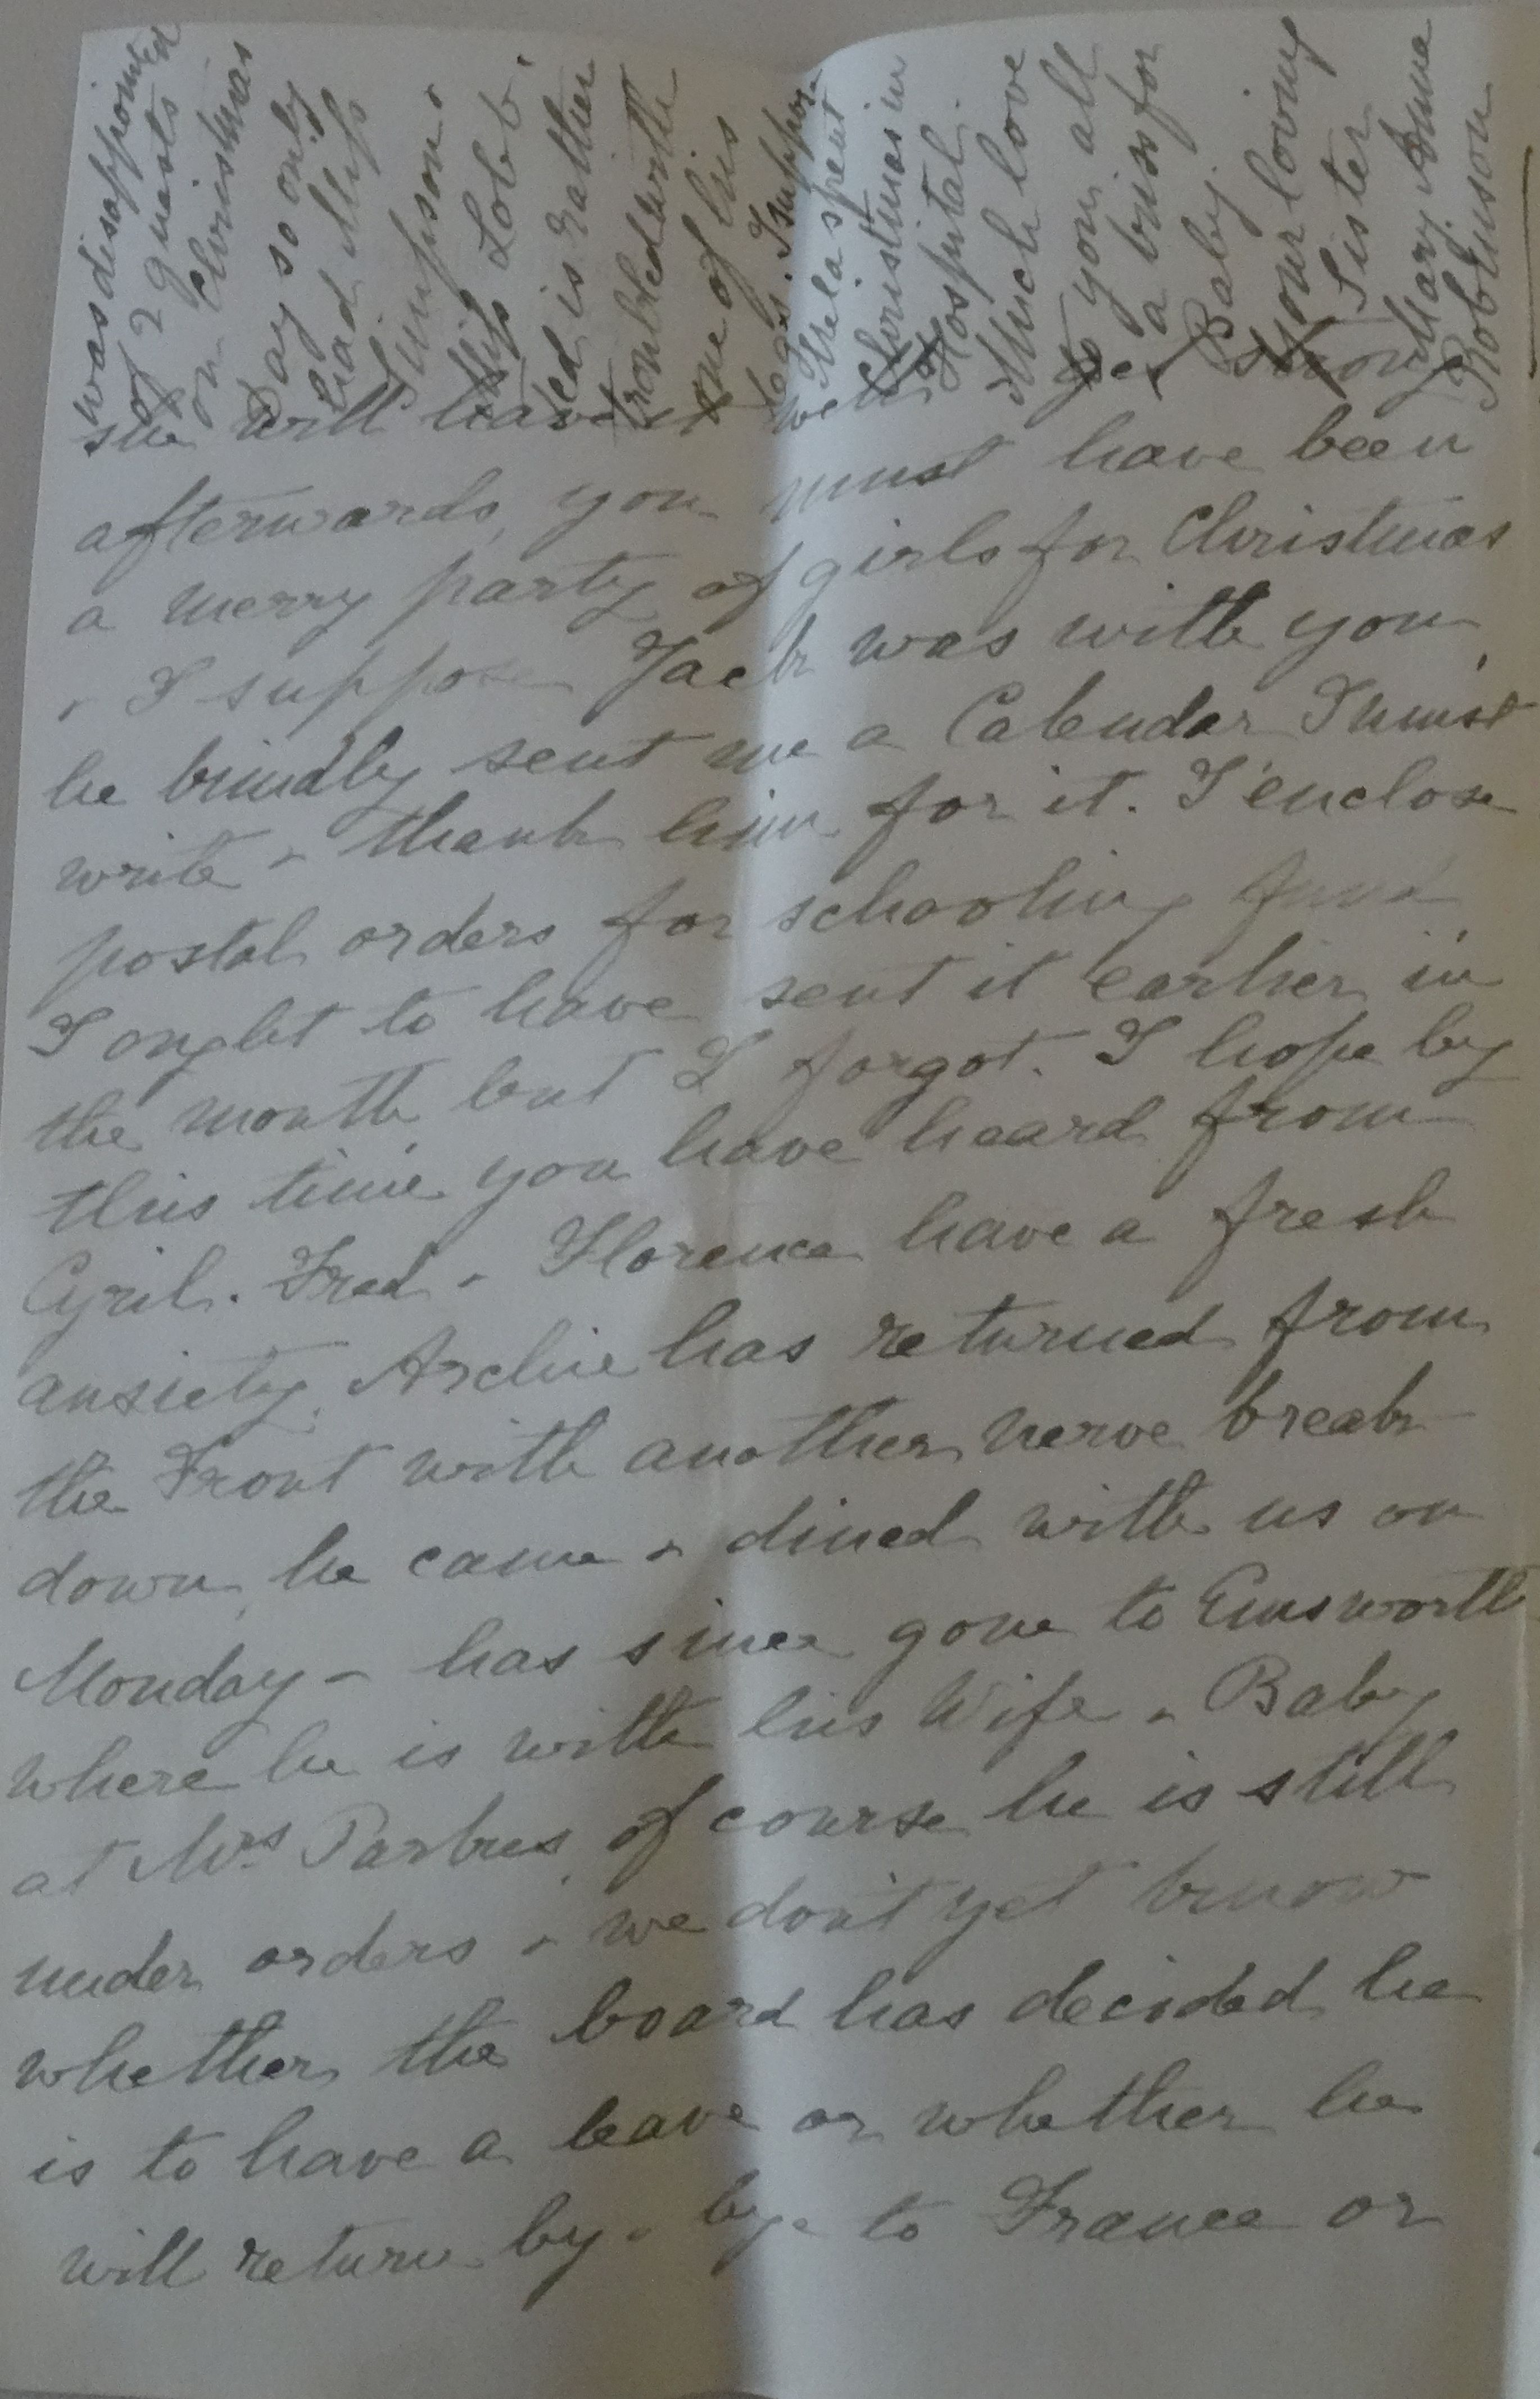 she will have it well & get strong
afterwards, you must have been
a merry party of girls for Christmas
& I suppose Jack was with you,
he kindly sent me a Calendar I must
write & thank him for it. I enclose
postal orders for schooling fund
I ought to have sent it earlier in
the month but I forgot. I hope by
this time you have heard from
Cyril. Fred & Florence have a fresh
anxiety, Archie has returned from
the Front with another nerve break
down, he came & dined with us on
Monday - has since gone to Emsworth
where he is with his Wife & Baby
at Mrs of course he is still
under orders & we don't yet know
whether the board has decided he
is to have a leave or whether he
will return by & bye to France or
was disappointed
of 2 guests
on Christmas
Day so only
had Miss
Simpson &
Miss Lobb.
is rather
troubled with
one of his
legs. I suppose
spent
Christmas in
Hospital.
Much love
to you all
a kiss for
Baby.
Your loving
Sister
Mary Anne
Robinson